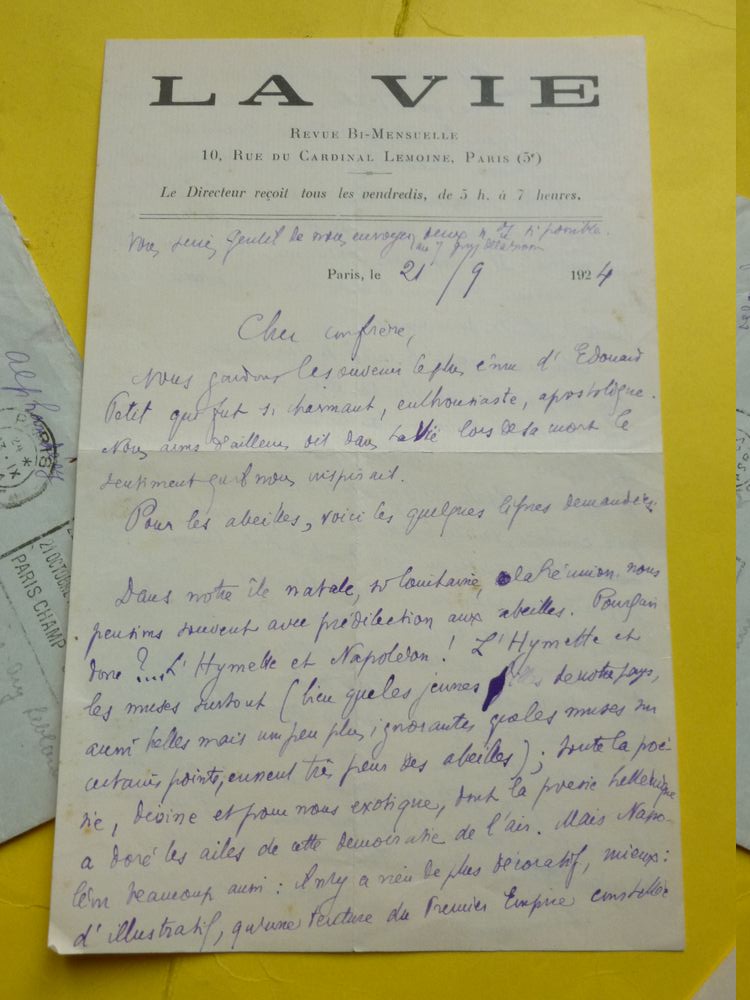 LA VIE
REVUE BI-MENSUELLE
10, RUE DU CARDINAL LEMOINE, PARIS (5e)
Le Directeur reçoit tous les vendredis, de 5 h. à 7 heures.
Vous seriez gentil de nous envoyer deux si possible.
Paris, le 21/9 1924
Cher confrère,
Nous gardons le souvenir le plus ému d'Edouard
Petit qui fut si charmant, enthousiaste, apostolique.
Nous avons d'ailleurs dit dans La Vie lors de sa mort le
sentiment qu'il nous inspirait.
Pour les abeilles, voici les quelques lignes demandées.
Dans notre île natale, si lointaine, la Réunion, nous
pensions souvent avec prédilection aux abeilles. Pourquoi
donc ?... L'Hymette et Napoléon ! L'Hymette et
les muses surtout (bien que les jeunes de notre pays,
aussi belles mais un peu plus ignorantes que les muses sur
certains points, eussent très peur des abeilles) ; toute la poé-
sie, divine et pour nous exotique, dont la poésie hellénique
a doré les ailes de cette démocratie de l'air. Mais Napo-
léon beaucoup aussi : il n'y a rien de plus décoratif, mieux :
d'illustratif, qu'une tenture du Premier Empire constellée
PARIS
21 OCTOBRE
PARIS CHAMP